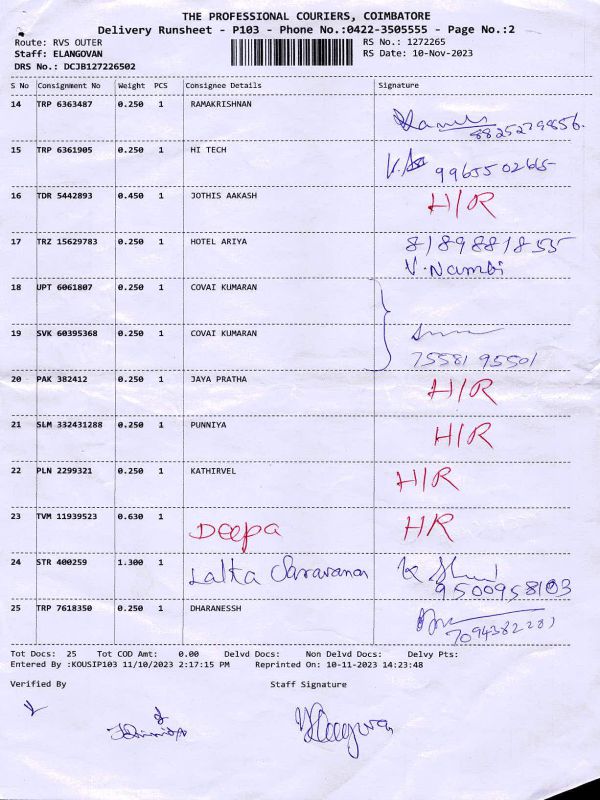 THE PROFESSIONAL COURIERS, COIMBATORE
Delivery Runsheet - P103 - Phone No.:0422-3505555 - Page No.:2
Route: RVS OUTER RS No.: 1272265
Staff: ELANGOVAN RS Date: 10-Nov-2023
DRS No.: DCJB127226502
S No Consignment No Weight PCS Consignee Details Signature
14 TRP 6363487 0.250 1 RAMAKRISHNAN
8825279856.
15 TRP 6361905 0.250 1 HI TECH
16 TDR 5442893 0.450 1 JOTHIS AAKASH H/R
17 TRZ 15629783 0.250 1 HOTEL ARIYA 8189881855
V.Nambi
18 UPT 6061807 0.250 1 COVAI KUMARAN
19 SVK 60395368 0.250 1 COVAI KUMARAN
75581 95501
20 PAK 382412 0.250 1 JAYA PRATHA H/R
21 SLM 332431288 0.250 1 PUNNIYA H/R
22 PLN 2299321 0.250 1 KATHIRVEL H/R
23 TVM 11939523 0.630 1 Deepa HR
24 STR 400259 1.300 1
9500958103
25 TRP 7618350 0.250 1 DHARANESSH
7094382281
Tot Docs: 25 Tot COD Amt: 0.00 Delvd Docs: Non Delvd Docs: Delvy Pts:
Entered By :KOUSIP103 11/10/2023 2:17:15 PM Reprinted On: 10-11-2023 14:23:48
Verified By Staff Signature